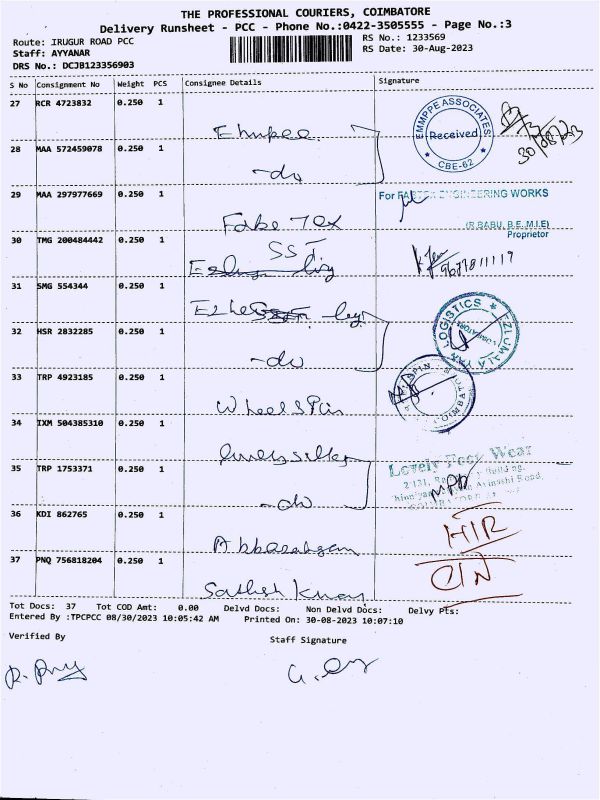 THE PROFESSIONAL COURIERS, COIMBATORE
Delivery Runsheet - PCC - Phone No.:0422-3505555 - Page No.:3
Route: IRUGUR ROAD PCC
RS No.: 1233569
Staff: AYYANAR
RS Date: 30-Aug-2023
DRS No.: DCJB123356903
S No Consignment No Weight PCS Consignee Details Signature
27 RCR 4723832 0.250 1
EMMPPE ASSOCIATES
Received
CBE-62
30/08/23
28 MAA 572459078 0.250 1
-do
29 MAA 297977669 0.250 1
For FABTEX ENGINEERING WORKS
Fabe Tex
(R.BABU, B.E, M.I.E)
Proprietor
30 TMG 200484442 0.250 1
SST
31 SMG 554344 0.250 1
LOGISTICS
32 HSR 2832285 0.250 1
-do
33 TRP 4923185 0.250 1
Wheel SPin
34 IXM 504385310 0.250 1
Lovely Foot Wear
35 TRP 1753371 0.250 1
Avinashi Road,
-do
36 KDI 862765 0.250 1
HIR
37 PNQ 756818204 0.250 1
CIN
Sathish Kumar
Tot Docs: 37 Tot COD Amt: 0.00 Delvd Docs: Non Delvd Docs: Delvy Pts:
Entered By :TPCPCC 08/30/2023 10:05:42 AM Printed On: 30-08-2023 10:07:10
Verified By
Staff Signature